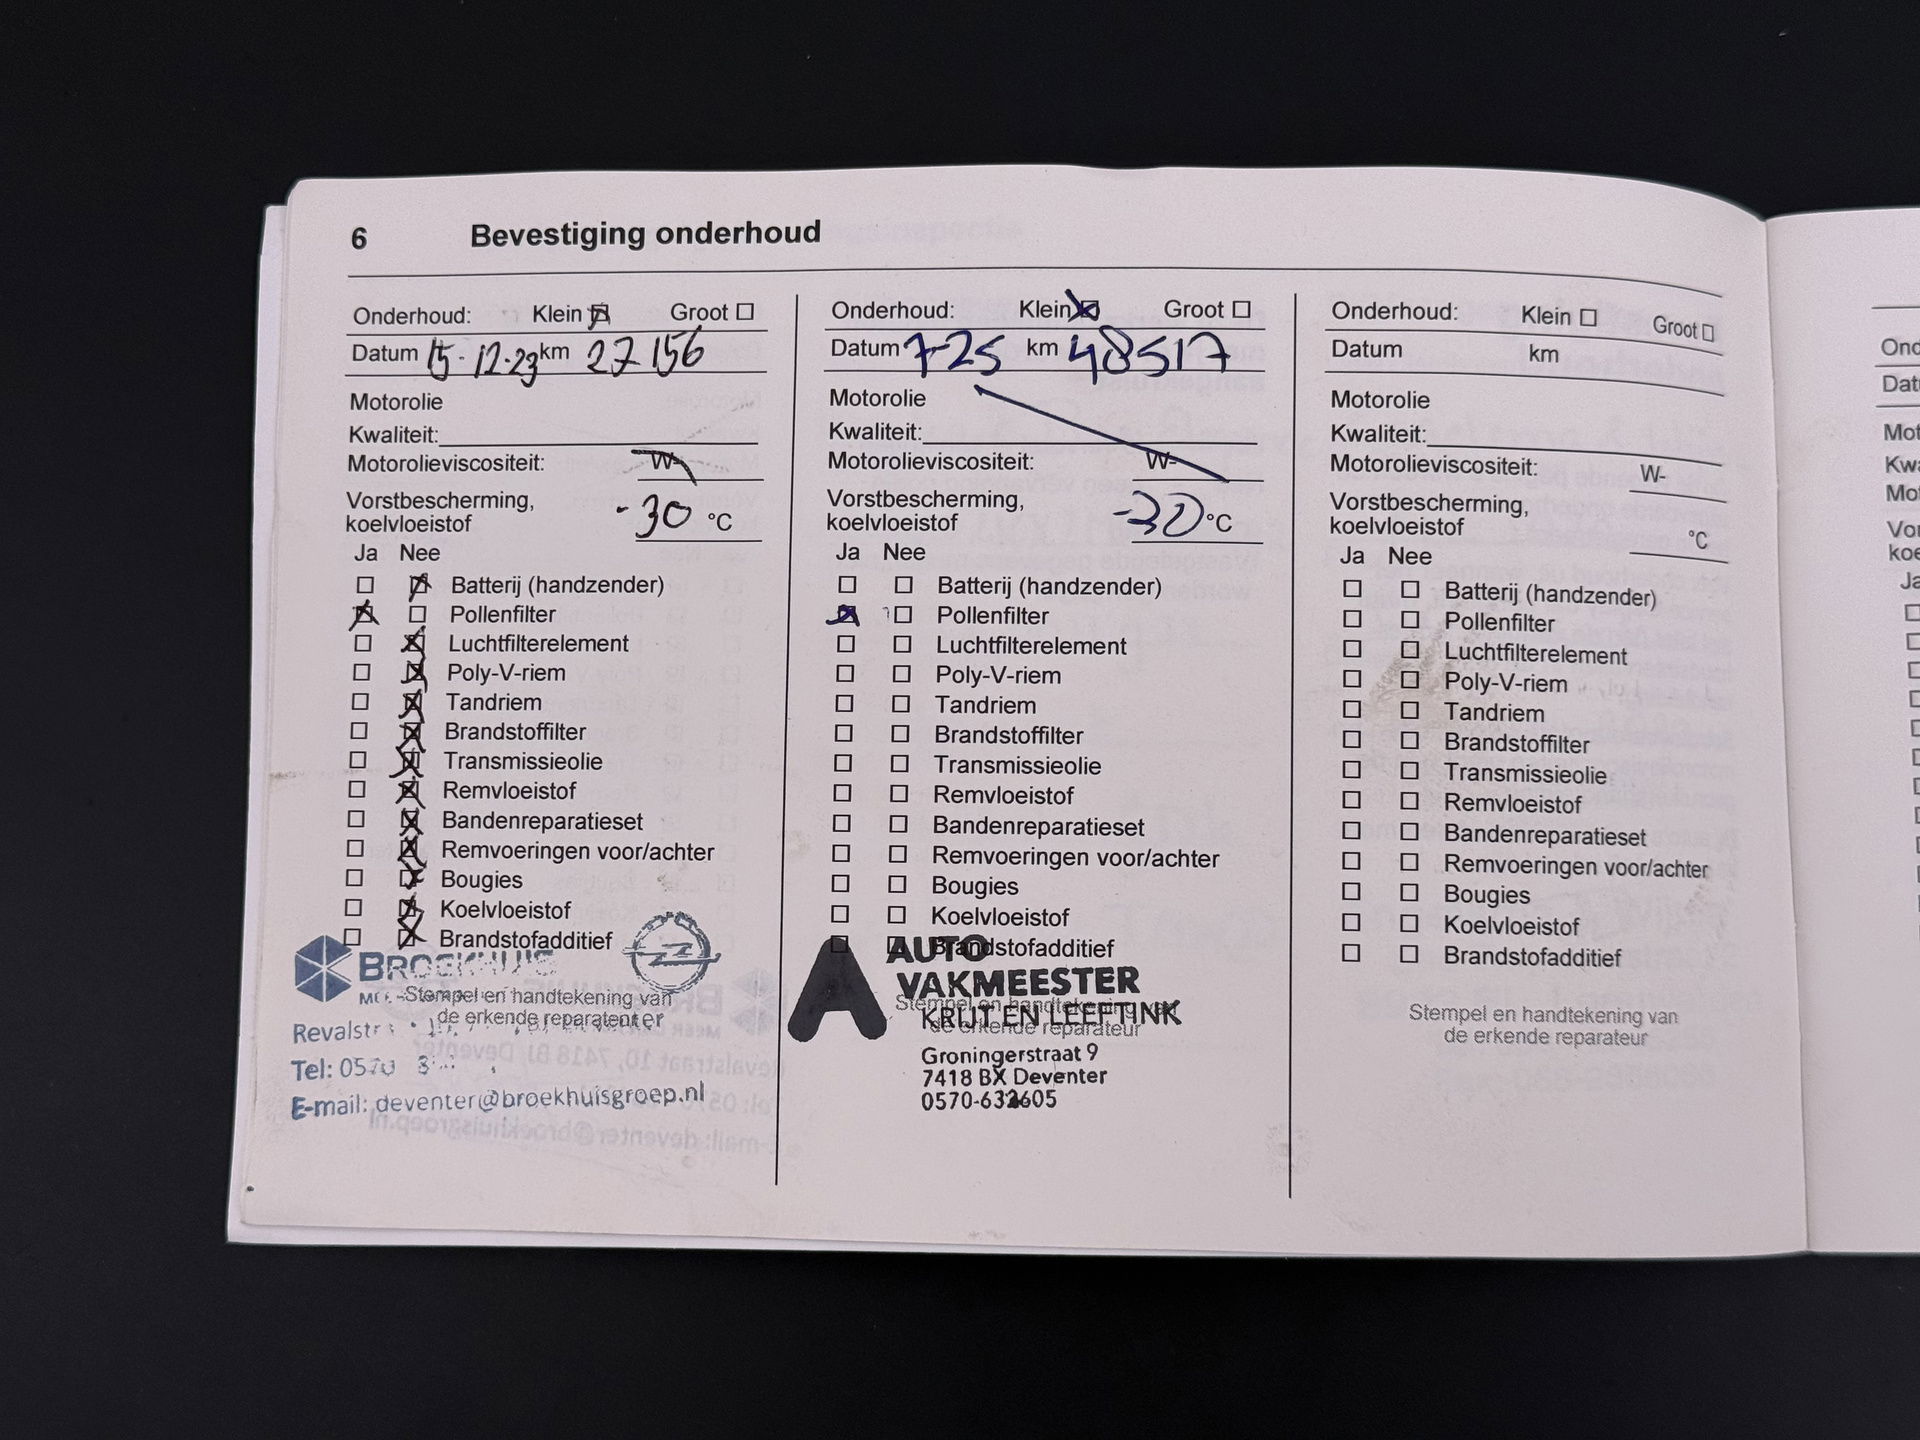 6 Bevestiging onderhoud
Onderhoud: Klein Groot
Datum 15-12-23 km 27156
Motorolie
Kwaliteit:
Motorolieviscositeit: W-
Vorstbescherming,
koelvloeistof -30 °C
Ja Nee
Batterij (handzender)
Pollenfilter
Luchtfilterelement
Poly-V-riem
Tandriem
Brandstoffilter
Transmissieolie
Remvloeistof
Bandenreparatieset
Remvoeringen voor/achter
Bougies
Koelvloeistof
Brandstofadditief
BROEKHUIS
Stempel en handtekening van
de erkende reparateur
Tel: 0570
E-mail: deventer@broekhuisgroep.nl
Onderhoud: Klein Groot
Datum 7-25 km 48517
Motorolie
Kwaliteit:
Motorolieviscositeit: W-
Vorstbescherming,
koelvloeistof -30 °C
Ja Nee
Batterij (handzender)
Pollenfilter
Luchtfilterelement
Poly-V-riem
Tandriem
Brandstoffilter
Transmissieolie
Remvloeistof
Bandenreparatieset
Remvoeringen voor/achter
Bougies
Koelvloeistof
Brandstofadditief
AUTO
VAKMEESTER
Stempel en handtekening van
KRIJT EN LEEFTINK
de erkende reparateur
Groningerstraat 9
7418 BX Deventer
0570-632605
Onderhoud: Klein Groot
Datum km
Motorolie
Kwaliteit:
Motorolieviscositeit: W-
Vorstbescherming,
koelvloeistof °C
Ja Nee
Batterij (handzender)
Pollenfilter
Luchtfilterelement
Poly-V-riem
Tandriem
Brandstoffilter
Transmissieolie
Remvloeistof
Bandenreparatieset
Remvoeringen voor/achter
Bougies
Koelvloeistof
Brandstofadditief
Stempel en handtekening van
de erkende reparateur